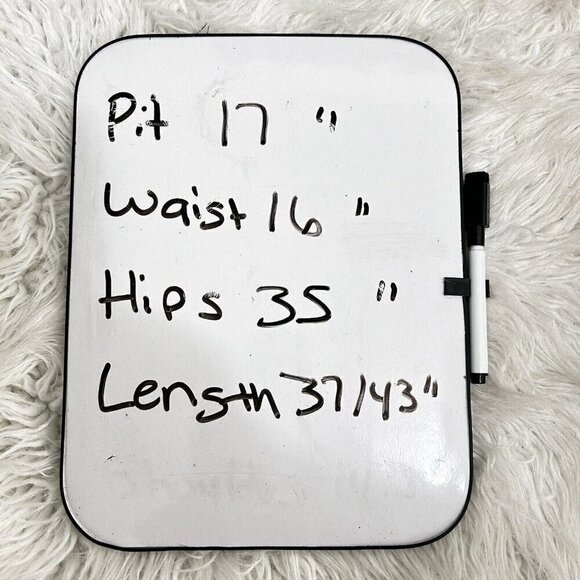 Pit 17 "
Waist 16 "
Hips 35 "
Length 37/43"